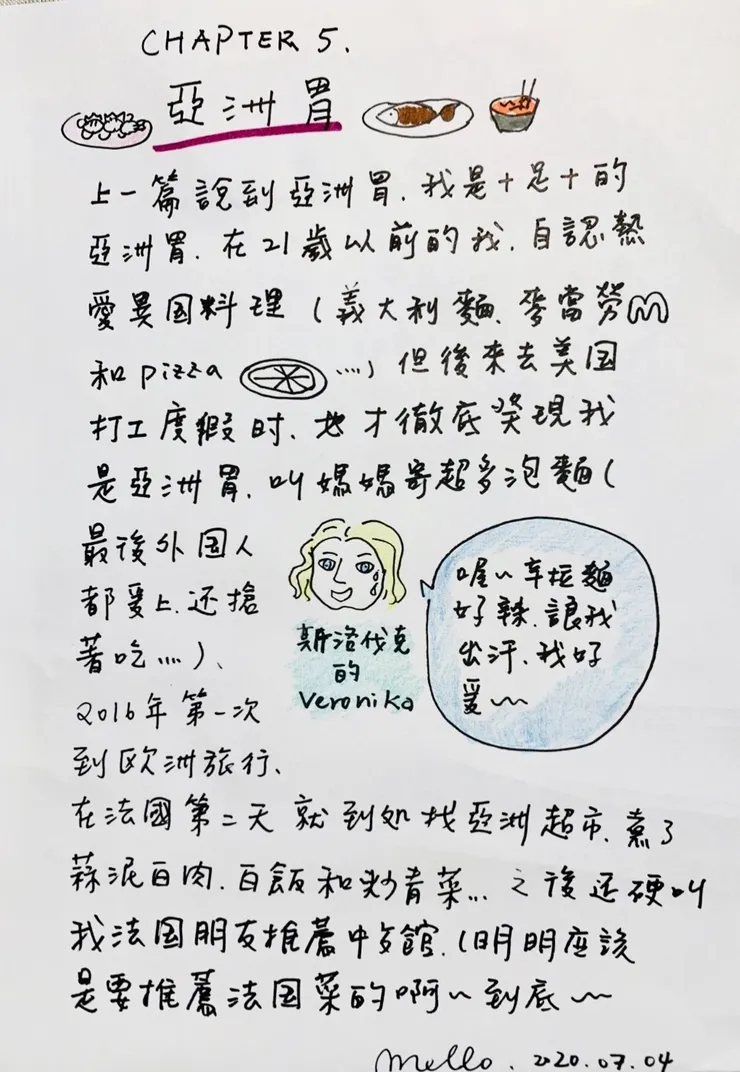 CHAPTER 5.
亞洲胃
上一篇說到亞洲胃.我是十足十的
亞洲胃.在21歲以前的我.自認熱
愛異国料理(義大利麵、麥當勞
和pizza ....)但後來去美国
打工度假时、也才徹底癸現我
是亞洲胃.叫媽媽寄超多泡麵(
最後外国人
都愛上.还搶
著吃....)、
喔~辛拉麵
好辣.讓我
出汗.我好
愛~~
斯洛伐克
的
Veronika
2016年第一次
到欧洲旅行、
在法國第二天就到処找亞洲超市.煮了
蒜泥白肉.白飯和炒青菜...之後还硬叫
我法国朋友推薦中餐館.(明明應該
是要推薦法国菜的啊~到底~~
Mello. 2020.07.04